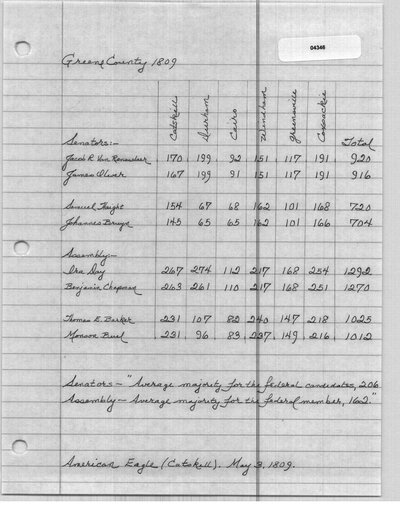 04346
Greene County 1809
Catskill Durham Cairo Windham Greenville Coxsackie
Senators:- Total
Jacob R. Van Rensselaer 170 199 92 151 117 191 920
James Oliver 167 199 91 151 117 191 916
Samuel Haight 154 67 68 162 101 168 720
Johannes Bruyn 145 65 65 162 101 166 704
Assembly:-
Ira Day 267 274 112 217 168 254 1292
Benjamin Chapman 263 261 110 217 168 251 1270
Thomas E. Barker 231 107 82 240 147 218 1025
Monson Buel 231 96 83 237 149 216 1012
Senators - "Average majority for the federal candidates, 206
Assembly - Average majority for the federal member, 162."
American Eagle (Catskill). May 3, 1809.